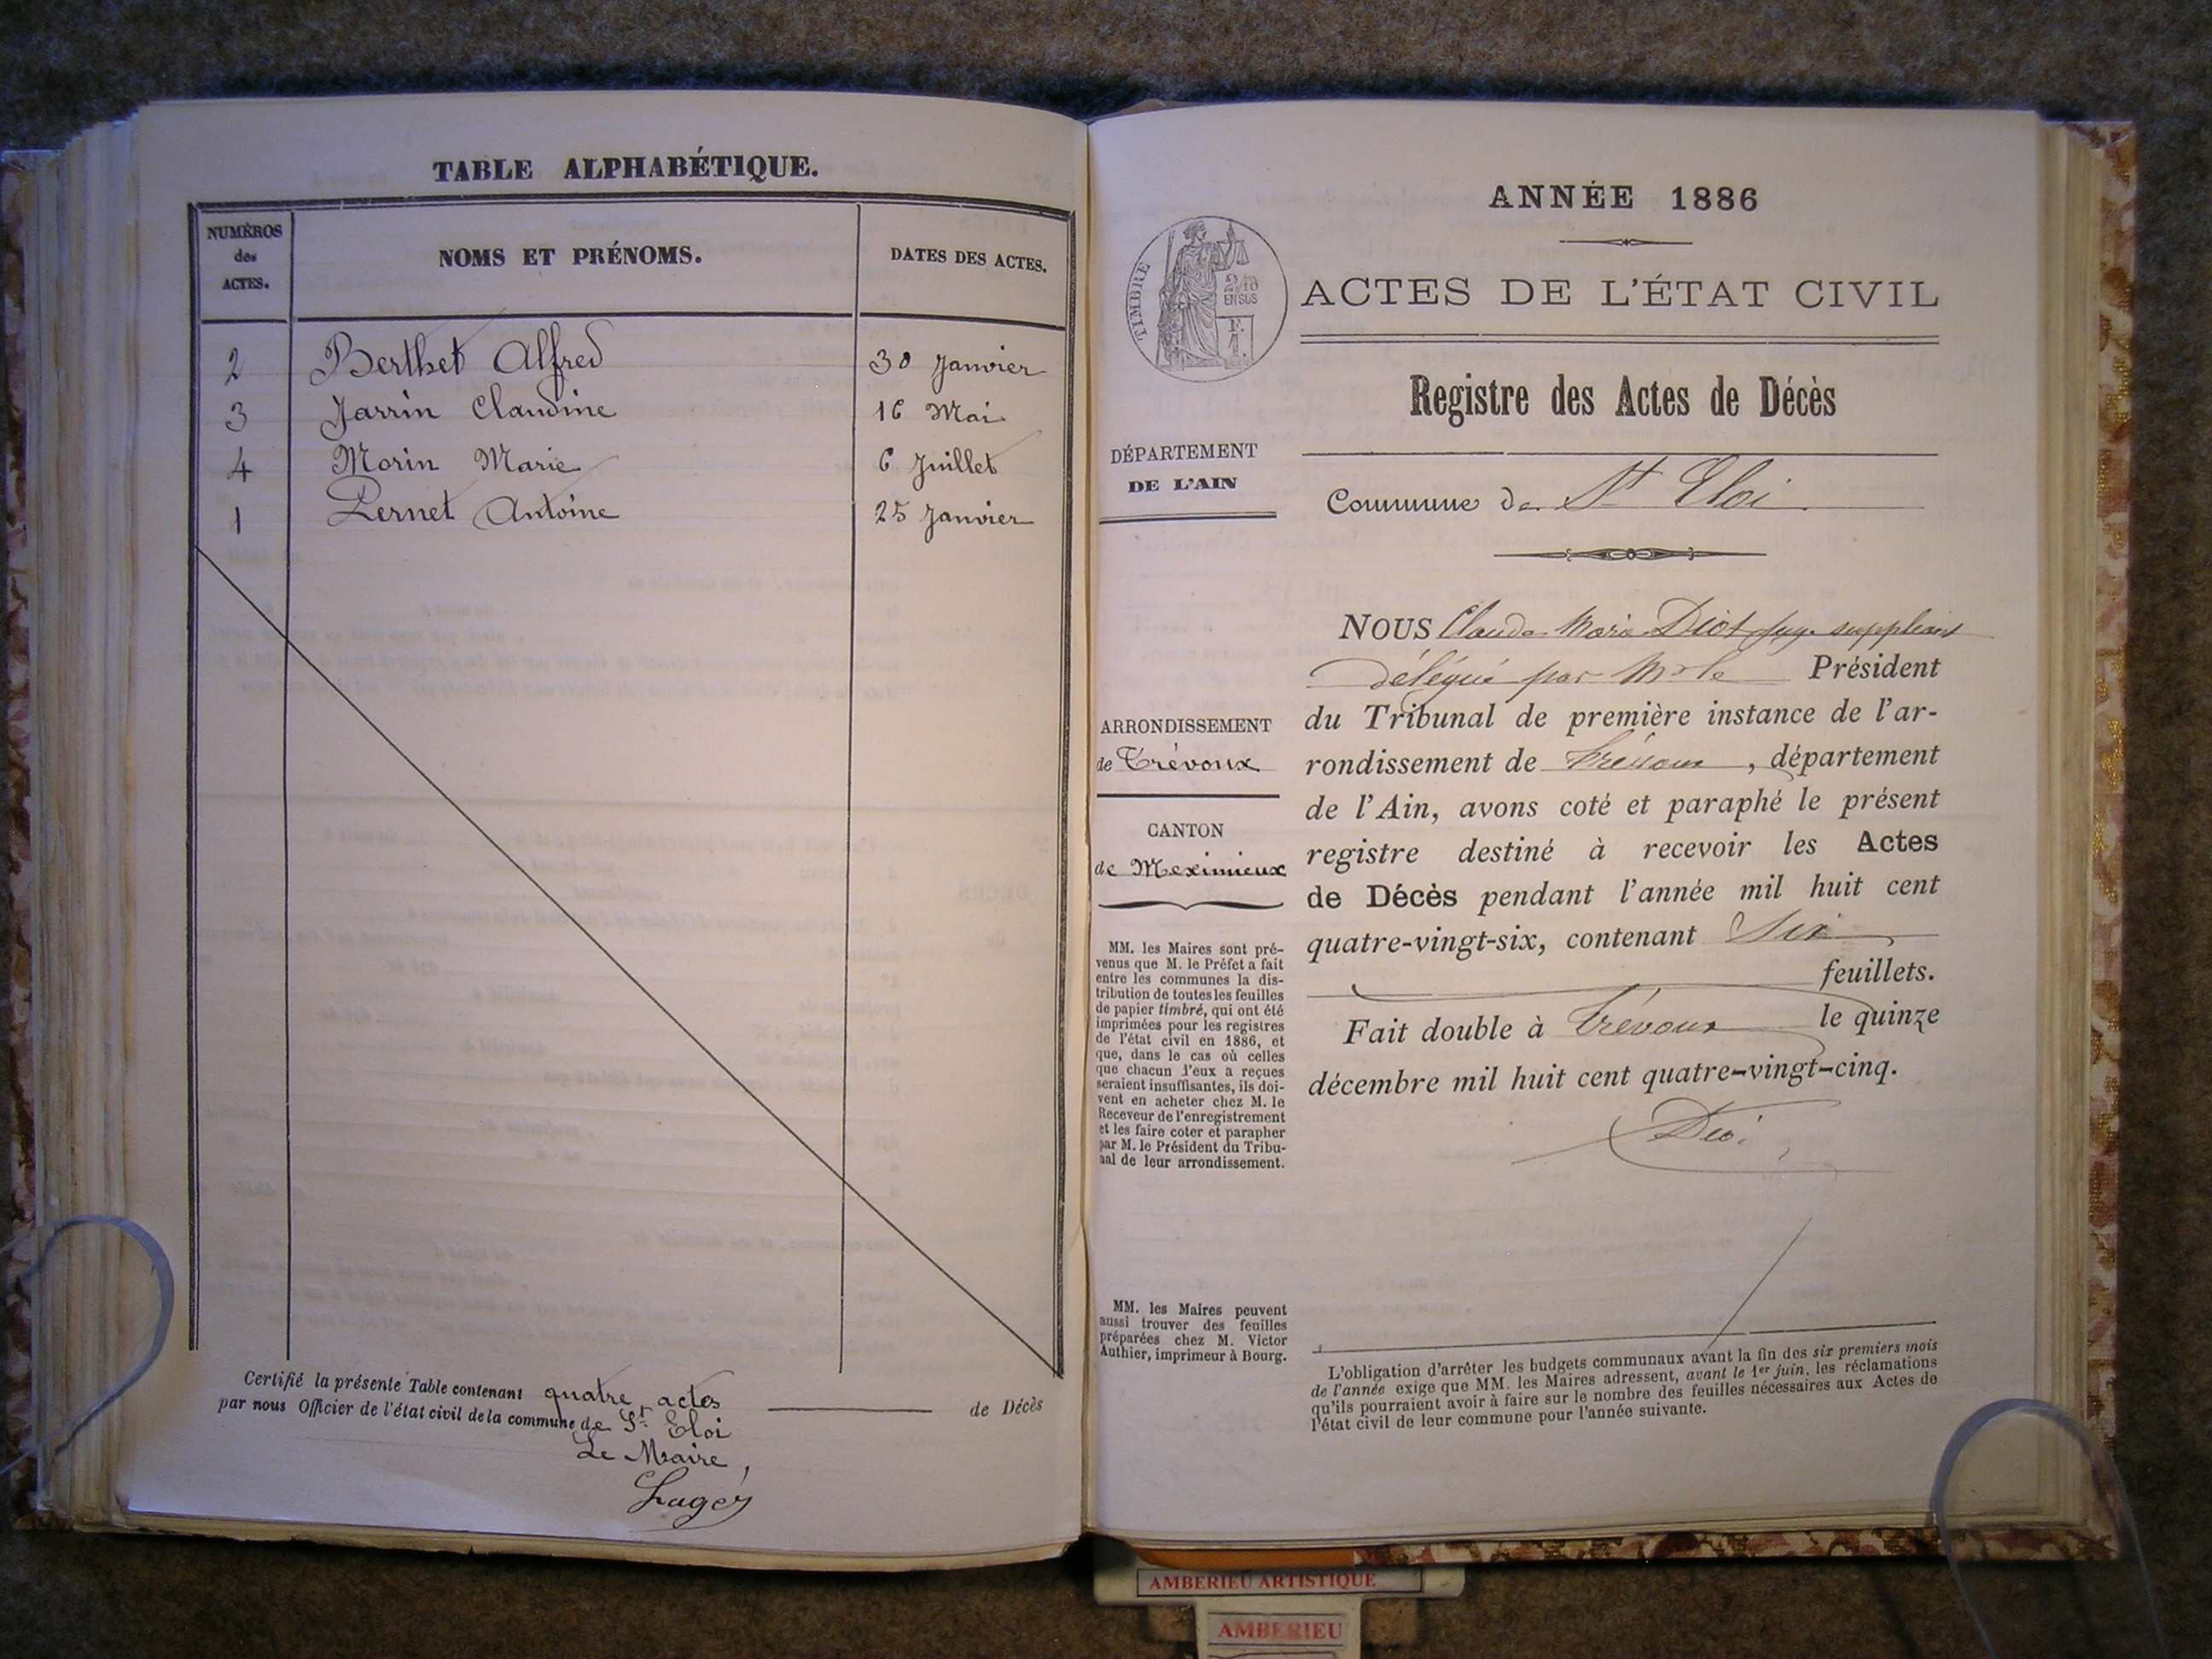 TABLE ALPHABÉTIQUE.
NUMÉROS
des
ACTES.
NOMS ET PRÉNOMS.
DATES DES ACTES.
2 Berthet Alfred 30 Janvier
3 Jarrin Claudine 16 Mai
4 Morin Marie 6 Juillet
1 Pernet Antoine 25 Janvier
Certifié la présente Table contenant quatre actes de Décès
par nous Officier de l'état civil de la commune de St Eloi
Le Maire,
ANNÉE 1886
ACTES DE L'ÉTAT CIVIL
TIMBRE
2/10
EN SUS
Registre des Actes de Décès
DÉPARTEMENT
DE L'AIN
Commune de St Eloi
ARRONDISSEMENT
de Trévoux
CANTON
de Meximieux
MM. les Maires sont pré-
venus que M. le Préfet a fait
entre les communes la dis-
tribution de toutes les feuilles
de papier timbré, qui ont été
imprimées pour les registres
de l'état civil en 1886, et
que, dans le cas où celles
que chacun d'eux a reçues
seraient insuffisantes, ils doi-
vent en acheter chez M. le
Receveur de l'enregistrement
et les faire coter et parapher
par M. le Président du Tribu-
nal de leur arrondissement.
MM. les Maires peuvent
aussi trouver des feuilles
préparées chez M. Victor
Authier, imprimeur à Bourg.
NOUS Claude Marie Diot juge suppléant
délégué par Mr le Président
du Tribunal de première instance de l'ar-
rondissement de Trévoux, département
de l'Ain, avons coté et paraphé le présent
registre destiné à recevoir les Actes
de Décès pendant l'année mil huit cent
quatre-vingt-six, contenant Six
feuillets.
Fait double à Trévoux le quinze
décembre mil huit cent quatre-vingt-cinq.
L'obligation d'arrêter les budgets communaux avant la fin des six premiers mois
de l'année exige que MM. les Maires adressent, avant le 1er juin, les réclamations
qu'ils pourraient avoir à faire sur le nombre des feuilles nécessaires aux Actes de
l'état civil de leur commune pour l'année suivante.
AMBERIEU ARTISTIQUE
AMBERIEU